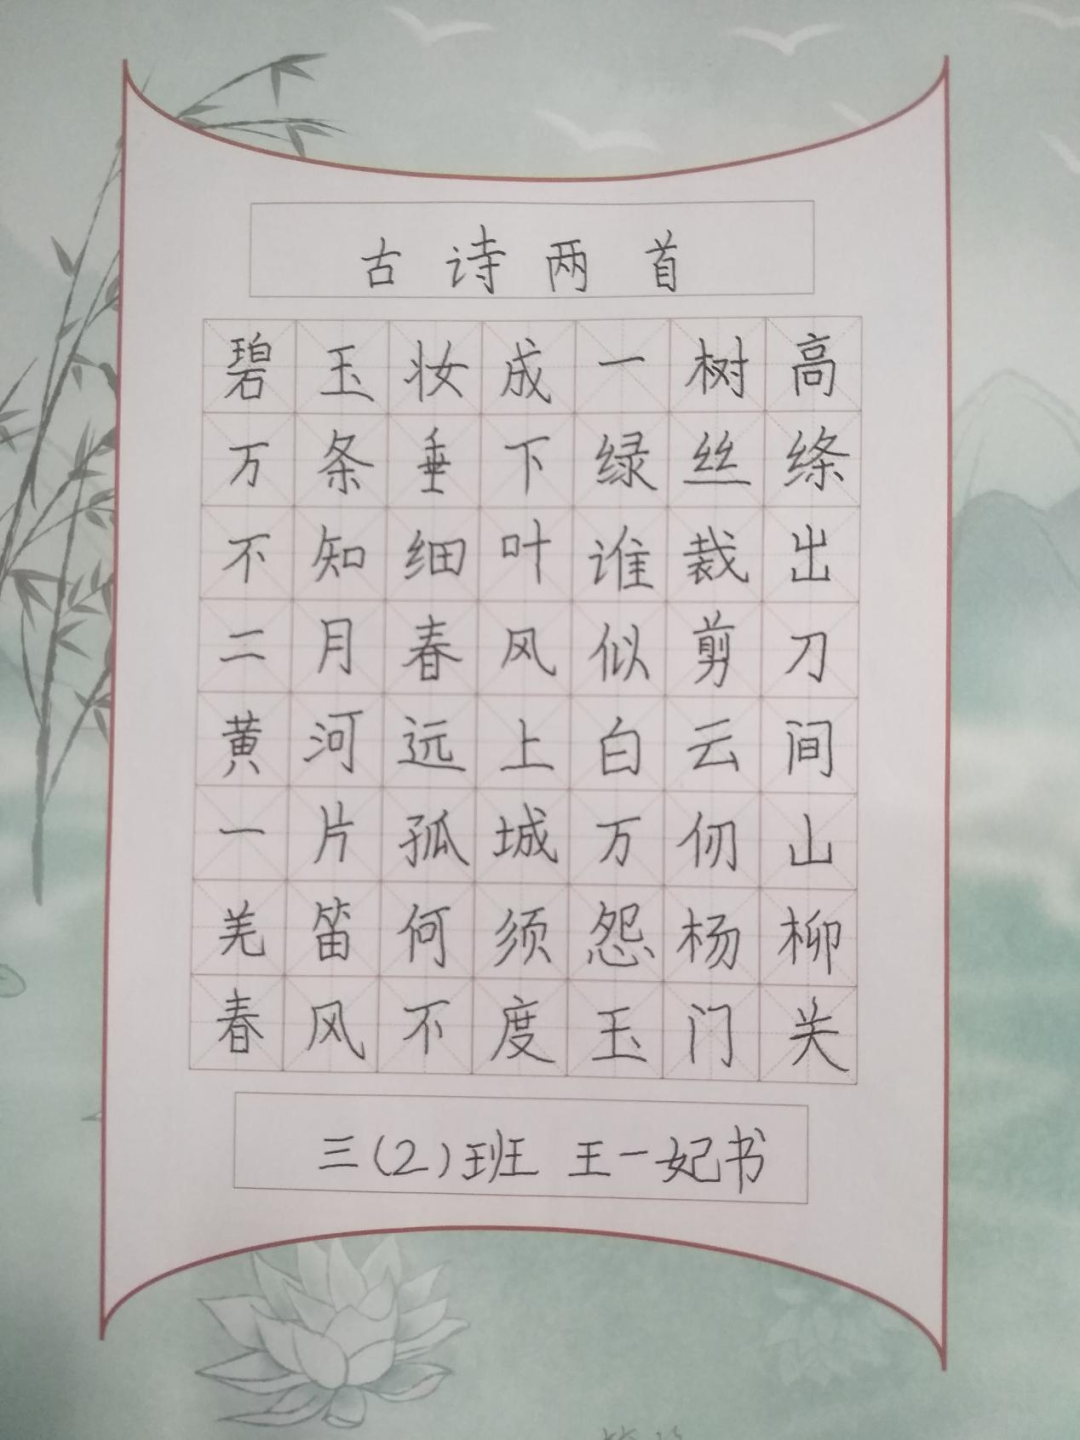 古诗两首
碧玉妆成一树高
万条垂下绿丝绦
不知细叶谁裁出
二月春风似剪刀
黄河远上白云间
一片孤城万仞山
羌笛何须怨杨柳
春风不度玉门关
三(2)班 王一妃书